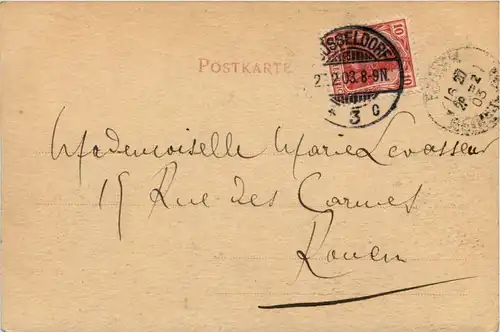 POSTKARTE
10 10
DÜSSELDORF
2.2.03.8-9N.
* 3 c
Mademoiselle Marie Levasseur
15 Rue des Carmes
Rouen